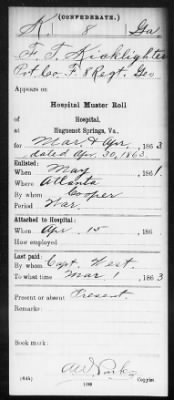 (CONFEDERATE.)
K. 8 Ga
F. T. Kicklighter
Pvt. Co. F. 8 Regt. Geo
Appears on
Hospital Muster Roll
of Hospital,
at Huguenot Springs, Va.,
for Mar & Apr, 186 3
dated Apr. 30, 1863.
Enlisted:
When May, 186 1.
Where Atlanta
By whom Cooper
Period War.
Attached to Hospital:
When Apr. 15, 186 .
How employed
Last paid:
By whom Capt. West.
To what time Mar 1, 186 3
Present or absent Present.
Remarks:
Book mark:
(646)
Copyist.